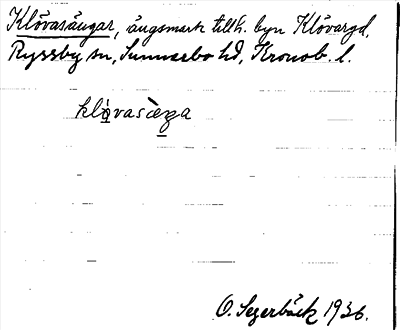 Klövasängar, ängsmark tillh. byn Klövargd,
Ryssby sn, Sunnerbo hd, Kronob. l.
klòvasàga
O. Segerbäck 1936.